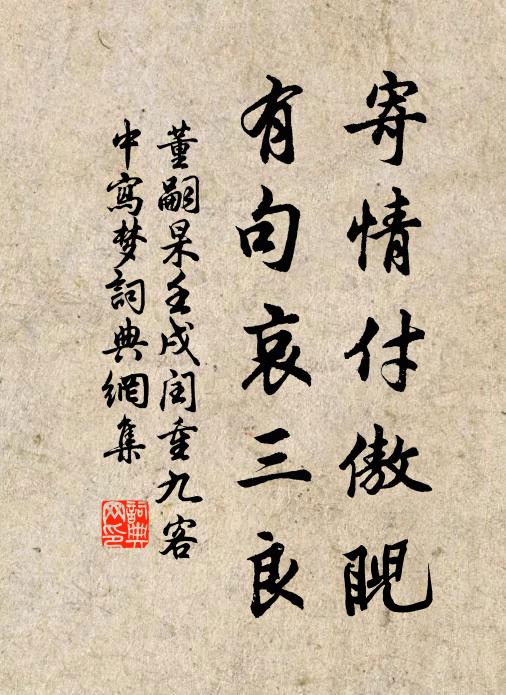 寄情付傲睨
有句哀三良
董嗣杲壬戌闰重九客
中寫梦詞典網集
詞典
网印